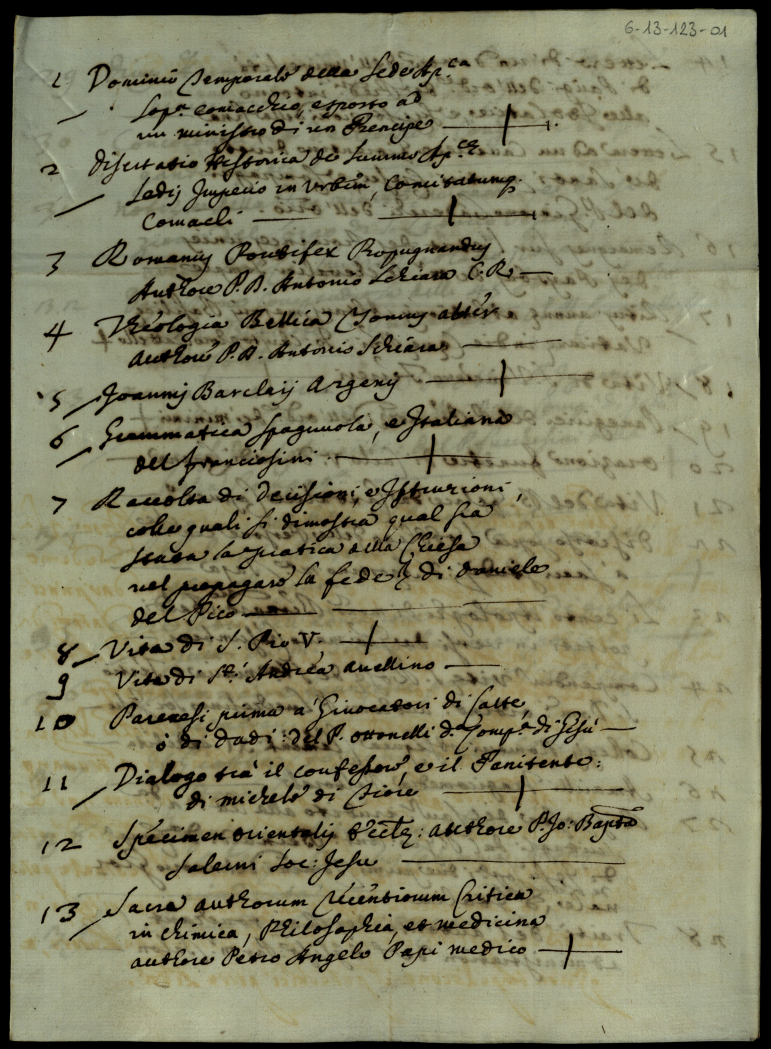 6-13-123-01
1 Dominio Temporale della Sede Ap.ca
Sop.a Comacchio, esposto ad
un ministro di un Prencipe
2 Disertatio Historica de Summo Ap.cæ
Sedis Imperio in Urbem, Comitatumq.
Comacli
3 Romanus Pontifex Propugnandus
Authore P. D. Antonio Schiara C. R.
4 Theologia Bellica Tomus alter
authore P. D. Antonio Schiara
5 Joannis Barclaij Argenis
6 Grammatica Spagnuola, e Italiana
del Franciosini
7 Raccolta di Decisioni, e Istruzioni,
colle quali si dimostra qual sia
stata la pratica della Chiesa
nel propagare la fede di Daniele
del Pico
8 Vita di S. Pio V
9 Vita di S. Andrea Avellino
10 Parenesi prima a' Giuocatori di Carte,
o di dadi: del P. Ottonelli d. Comp.a di Giesù
11 Dialogo trà il confessore, e il Penitente:
di michele di Fiore
12 Specimen orientalis Eccl.æ: authore P. Jo: Bapta
Salerni Soc: Jesu
13 Sacra authorum recentiorum Critica
in chimica, Philosophia, et medicina
authore Petro Angelo Papi medico